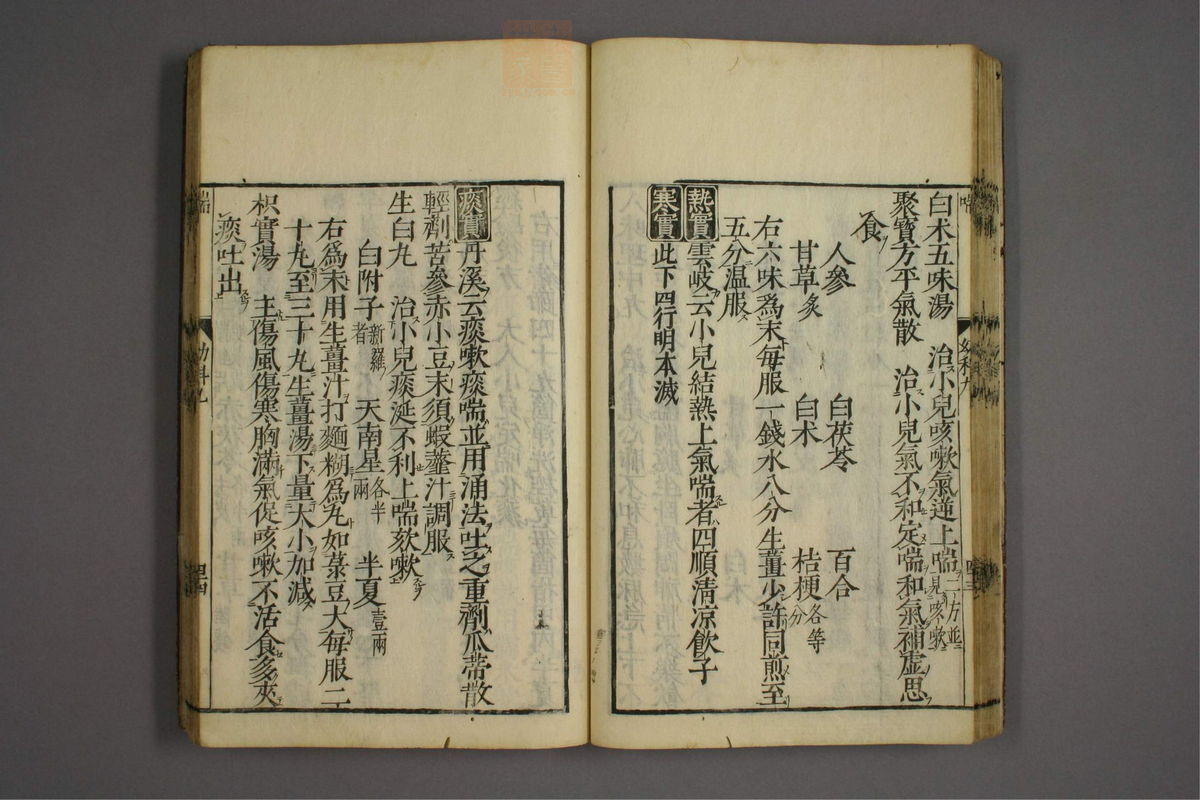 白朮五味湯　治小兒咳嗽氣逆上喘二方並見咳嗽
聚寶方平氣散　治小兒氣不和定喘和氣補虛思
食
人參　白茯苓　百合
甘草炙　白朮　桔梗各等分
右六味爲末每服一錢水八分生薑少許同煎至
五分温服
熱實 雲岐云小兒結熱上氣喘者四順清凉飲子
寒實 此下四行明本滅
痰實 丹溪云痰嗽痰喘並用涌法吐之重劑瓜蒂散
輕劑苦參赤小豆末須蝦虀汁調服
生白丸　治小兒痰涎不利上喘欬嗽
白附子新羅者　天南星各半兩　半夏壹兩
右爲末用生薑汁打麵糊爲丸如菉豆大每服二
十丸至三十丸生薑湯下量大小加減
枳實湯　主傷風傷寒胸滿氣促咳嗽不活食多夾
痰吐出